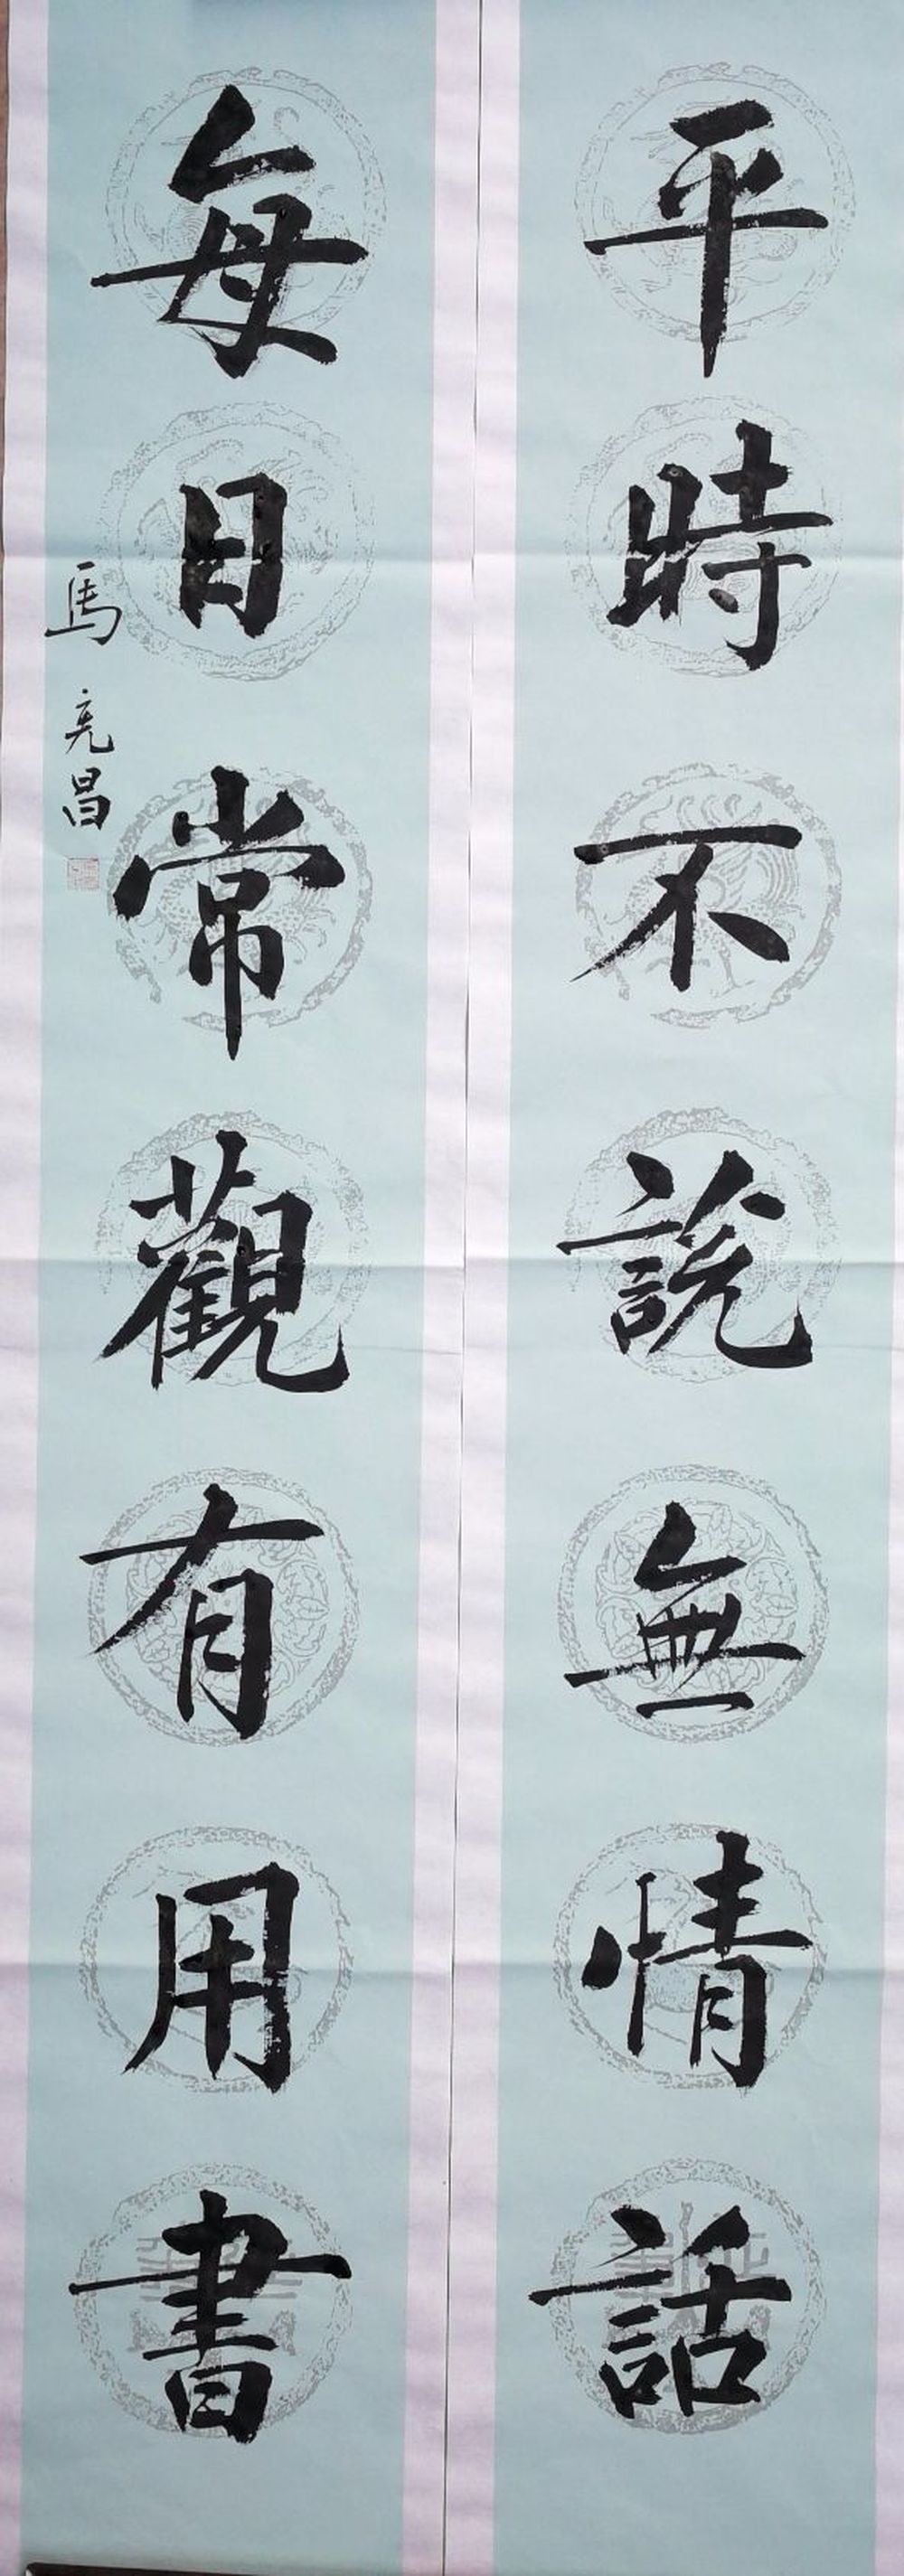 平時不説無情話
每日常觀有用書
馬亮昌